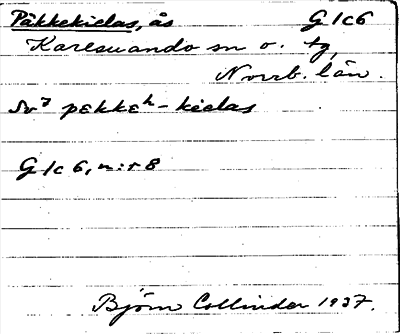 Påkkekielas, ås G1c6
Karesuando sn o. tg,
Norrb. län.
pɛkkɛʰ-kielas
G1c6, n:r 8
Björn Collinder 1937.